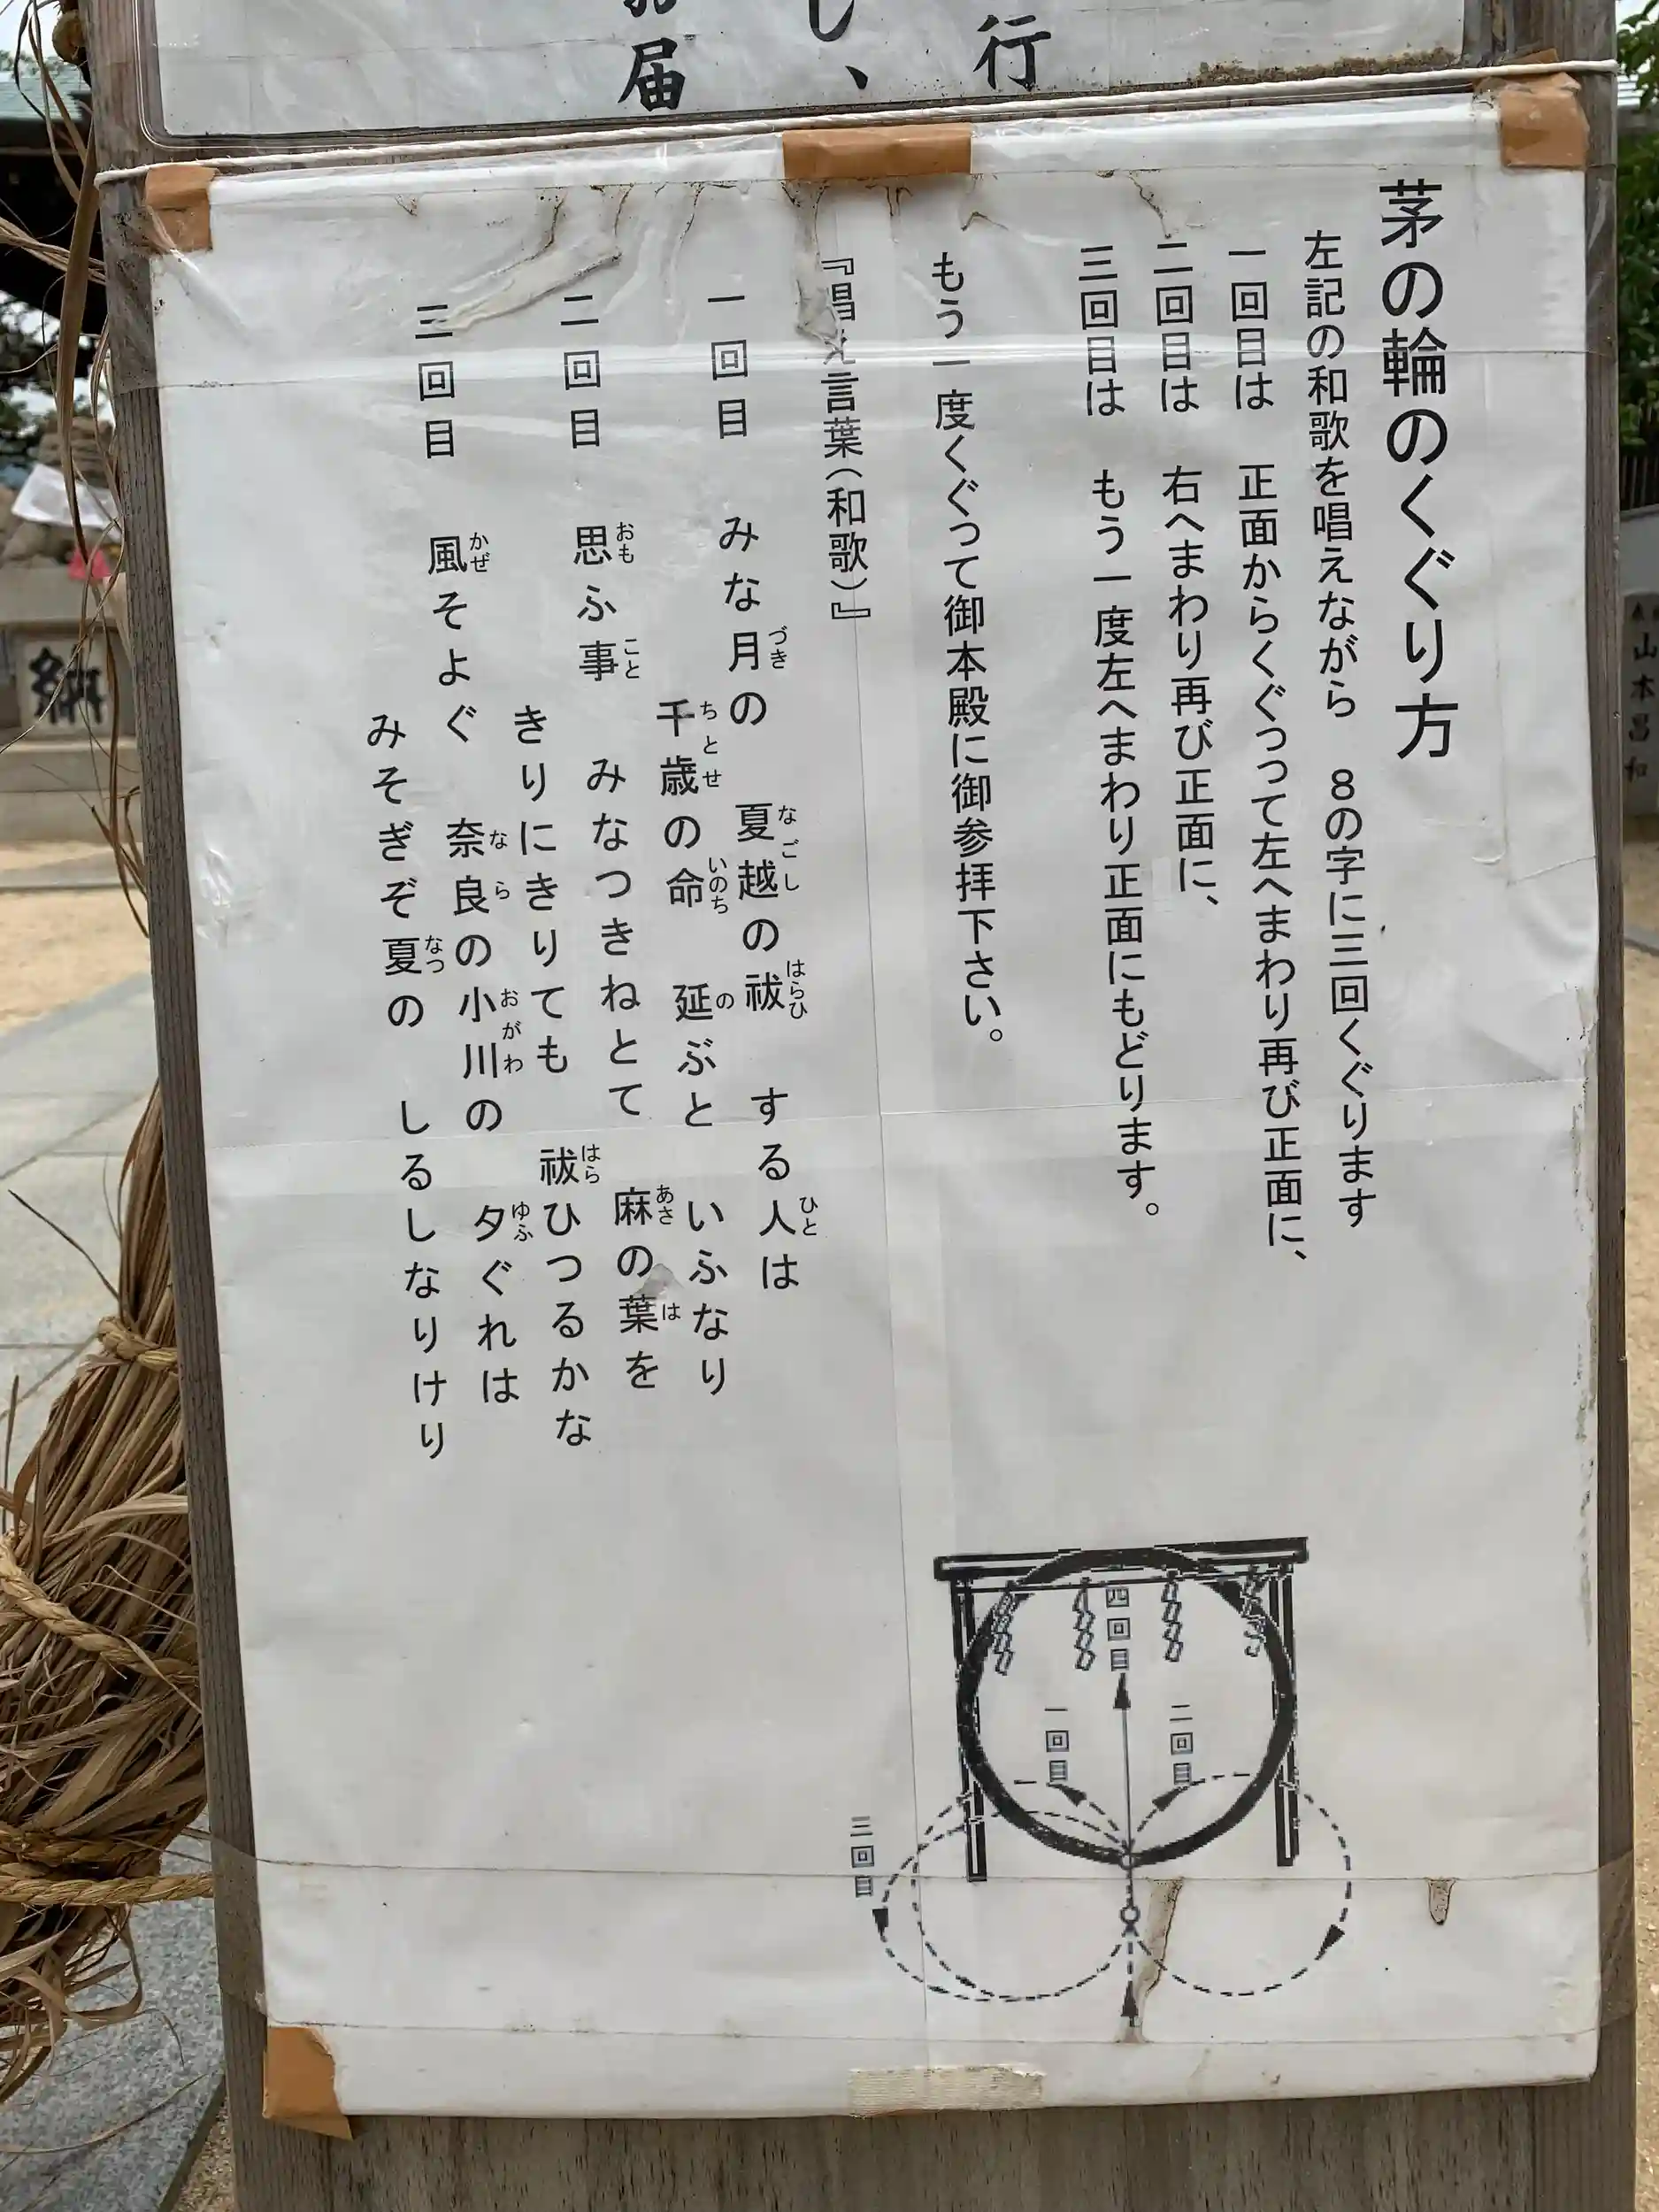 行
し、
お届
茅の輪のくぐり方
左記の和歌を唱えながら　8の字に三回くぐります
一回目は　正面からくぐって左へまわり再び正面に、
二回目は　右へまわり再び正面に、
三回目は　もう一度左へまわり正面にもどります。
もう一度くぐって御本殿に御参拝下さい。
『唱え言葉（和歌）』
一回目　みな月の　夏越の祓　する人は
づき　なごし　はらひ　ひと
千歳の命　延ぶと　いふなり
ちとせ　いのち　の
二回目　思ふ事　みなつきねとて　麻の葉を
おも　こと　あさ　は
きりにきりても　祓ひつるかな
はら
三回目　風そよぐ　奈良の小川の　夕ぐれは
かぜ　なら　おがわ　ゆふ
みそぎぞ夏の　しるしなりけり
なつ
四回目
二回目
一回目
三回目
納
山本昌和